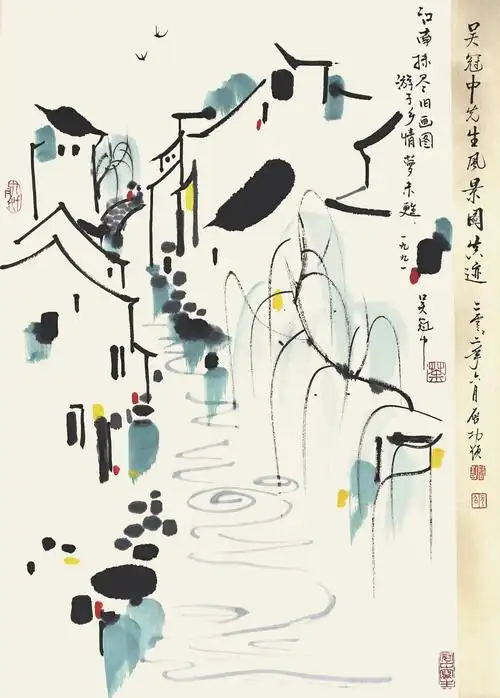 吴冠中先生風景图真迹
二〇〇二年六月启功题
江南抹尽旧画图
游子乡情夢未甦
一九九一
吴冠中